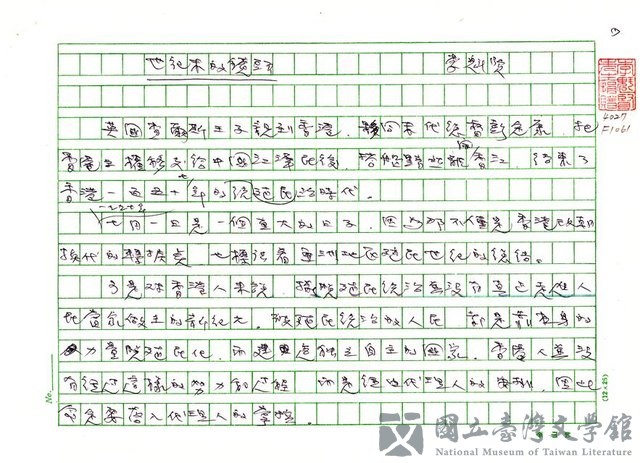 世紀末的
李魁賢
4027
F1061
英國查爾斯王子親到香港,偕同末代總督彭定康,把
香港主權移交給中國江澤民後,搭船黯然離開香江,結束了
香港一百五十年的殖民統治時代。
一九九七年
七月一日是一個重大的日子,因為那不僅是香港改朝
換代的轉捩點,也標誌著亞洲地區殖民世紀的總結。
可是對香港人來說,擺脫殖民統治並沒有真正走進人
民當家做主的新紀元。被殖民統治的人民,都是靠本身的
力量脫殖民化,而建立起獨立自主的國家。香港人並沒
有經過這樣的努力和過程,而是經由代理人的安排,因此
代理人的掌控。
No.
(12×25)
國立臺灣文學館
National Museum of Taiwan Literature